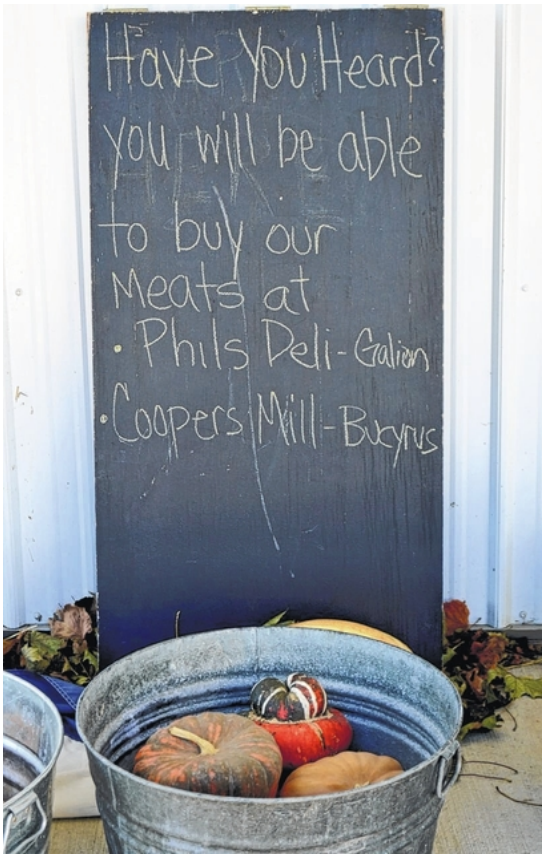 Have You Heard?
you will be able
to buy our
Meats at
• Phils Deli - Galion
• Coopers Mill - Bucyrus